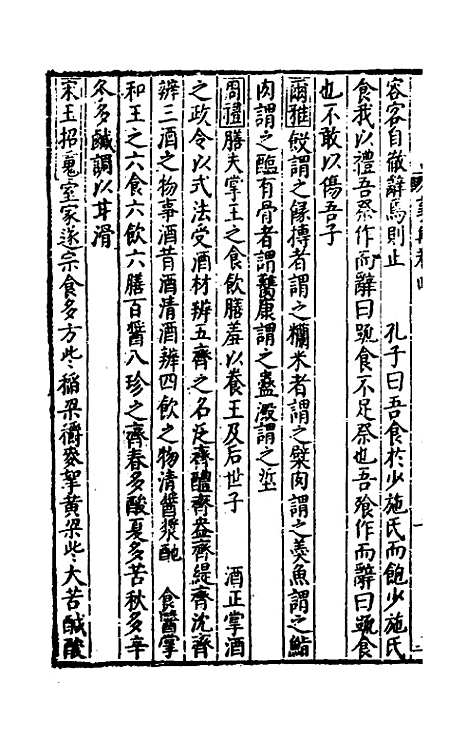 容客自徹辭焉則止　孔子曰吾食於少施氏而飽少施氏
食我以禮吾祭作而辭曰蔬食不足祭也吾飱作而辭曰蔬食
也不敢以傷吾子
爾雅餀謂之餯摶者謂之糷米者謂之糪肉謂之羮魚謂之鮨
肉謂之醢有骨者謂臡康謂之蠱澱謂之垽
周禮膳夫掌王之食飲膳羞以養王及后世子　酒正掌酒
之政令以式法受酒材辨五齊之名泛齊醴齊盎齊緹齊沈齊
辨三酒之物事酒昔酒清酒辨四飲之物清醫漿酏　食醫掌
和王之六食六飲六膳百醬八珍之齊春多酸夏多苦秋多辛
冬多鹹調以甘滑
宋玉招䰟室家遂宗食多方些稻粱穱麥挐黄粱些大苦醎酸